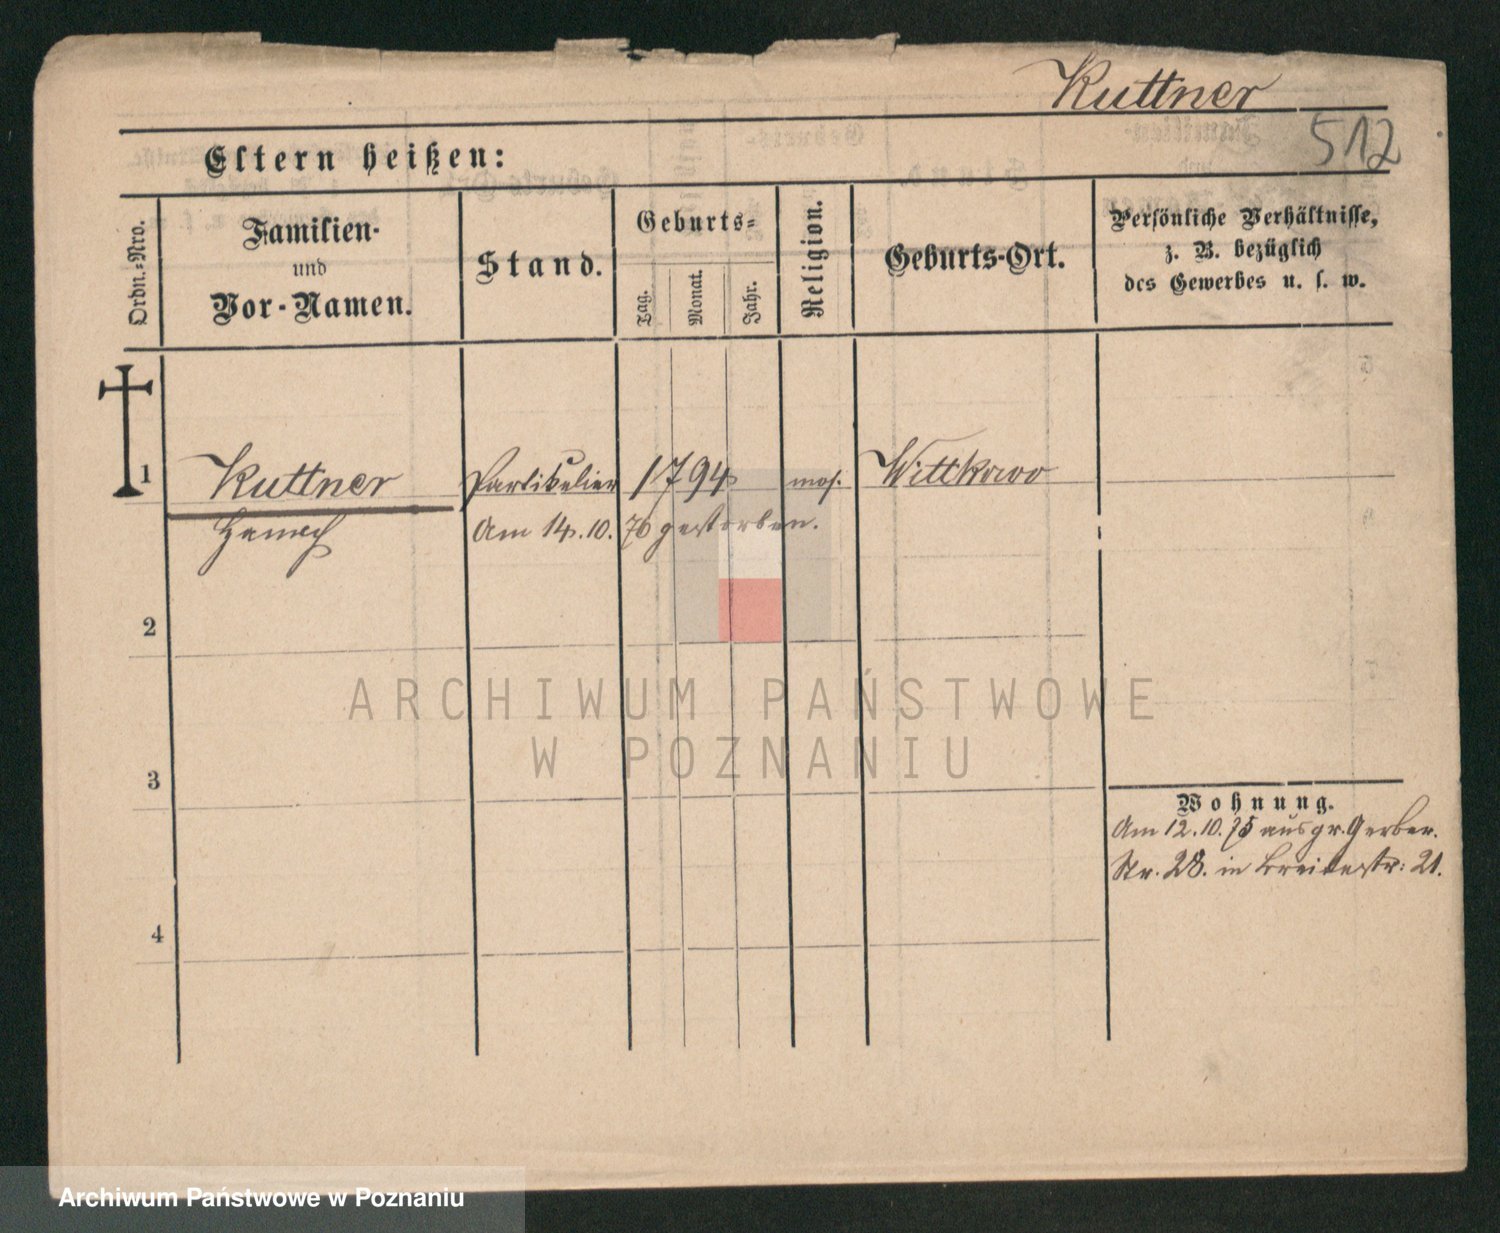 Kuttner
512
Eltern heißen:
Ordn.=Nro.
Familien-
und
Vor-Namen.
Stand.
Geburts=
Tag.
Monat.
Jahr.
Religion.
Geburts-Ort.
Persönliche Verhältnisse,
z. B. bezüglich
des Gewerbes u. s. w.
1
Kuttner
Partikulier
1794
mos.
Wittkowo
Am 14.10. 76 gestorben.
2
3
4
ARCHIWUM PAŃSTWOWE
W POZNANIU
Wohnung.
Am 12.10.75 aus gr. Gerber.
Str. 28. in Breitestr: 21.
Archiwum Państwowe w Poznaniu